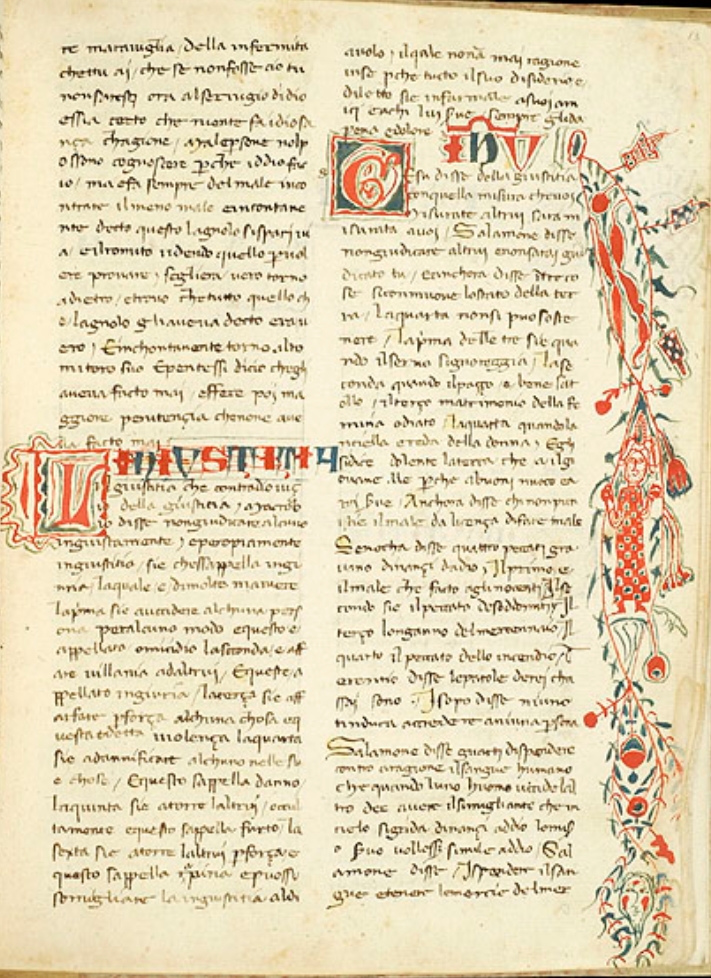 te maraviglia / della infermita
chettu ai / che se nonfosse cio tu
non saresti ora al servigio di dio
essia certo che niente fa idio sa
nça chagione / Malepsone nolp
ossono cognoscere pche iddio fac
io / ma efa sempre del male inco
ntrare il meno male e incontane
nte decto questo lagnolo spari vi
a / e il romito udendo quello
ere provare / vero torno
adietro / e trovo chetutto quello ch
e lagnolo gliaveva decto era v
ero / E inchontanente torno alro
mitoro suo E
aveva facto mai / essere poi ma
ggiore penitençia che non ave
va facto mai
INIUSTITIA
La
ingiustitia che contradio viç
io della giustitia / Iacob
o disse non giudicate alcuno
ingiustamente / e propiamente
ingiustitia / sie chessappella ingi
uria / laquale e di molte maniere
La pma sie auccidere alchuna pers
ona per alcuno modo e questo e
appellato omicidio la seconda e aff
are villania ad altrui / E queste a
ppellato ingiuria / la terça sie aff
are fare pforça alchuna chosa eq
uesta e detta violença la quarta
sie adannificare alchuno nelle su
e chose / E questo sappella danno /
La quinta sie a torre laltrui / occul
tamente e questo sappella furto / la
sexta sie a torre laltrui pforça e
questo sappella rapina e puossi
somigliare la ingiustitia / aldi
avolo / il quale non a mai ragione
inse pche tucto il suo disiderio e
diletto sie in far male a suoi am
ici e a chi lui sue sempre gli da
pena e dolore
Esu disse della giustitia
con quella misura che voi
misurate altrui sara m
isurata a voi / Salamone disse
non giudicare altrui e non sarai giu
dicato tu / E anchora disse p tre co
se si conmuove lo stato della ter
ra / La quarta non si puo soste
nere / La pma delle tre sie qua
ndo il servo signoreggia / La se
conda quando il paçço e bene sat
ollo / il terço matrimonio della fe
mina odiato / La quarta quando la
ncilla e reda della donna / Egh
sidio dolente la terra che a il gi
ovane alle pche
Anchora disse chi non pun
isce il male da licença di fare male
Senocha disse quattro peccati gra
vano dinançi da dio / Il primo e
il male che facto agli nocenti / Il se
condo sie il peccato del sodomito / Il
terço longanno del mercennaio / Il
quarto il peccato dello incendio /
eremie disse le parole de rei cha
ssai sono / Isopo disse niuno
tinduca accredere a niuna psona
Salamone disse guarti di spandere
contro a ragione il sangue humano
che quando luno huomo uccide lal
tro dee avere il simigliante che in
cielo si grida dinançi a ddio
o fuo simile a ddio / Sal
amone disse / Ispandere il san
gue e tenere le mercie del mer